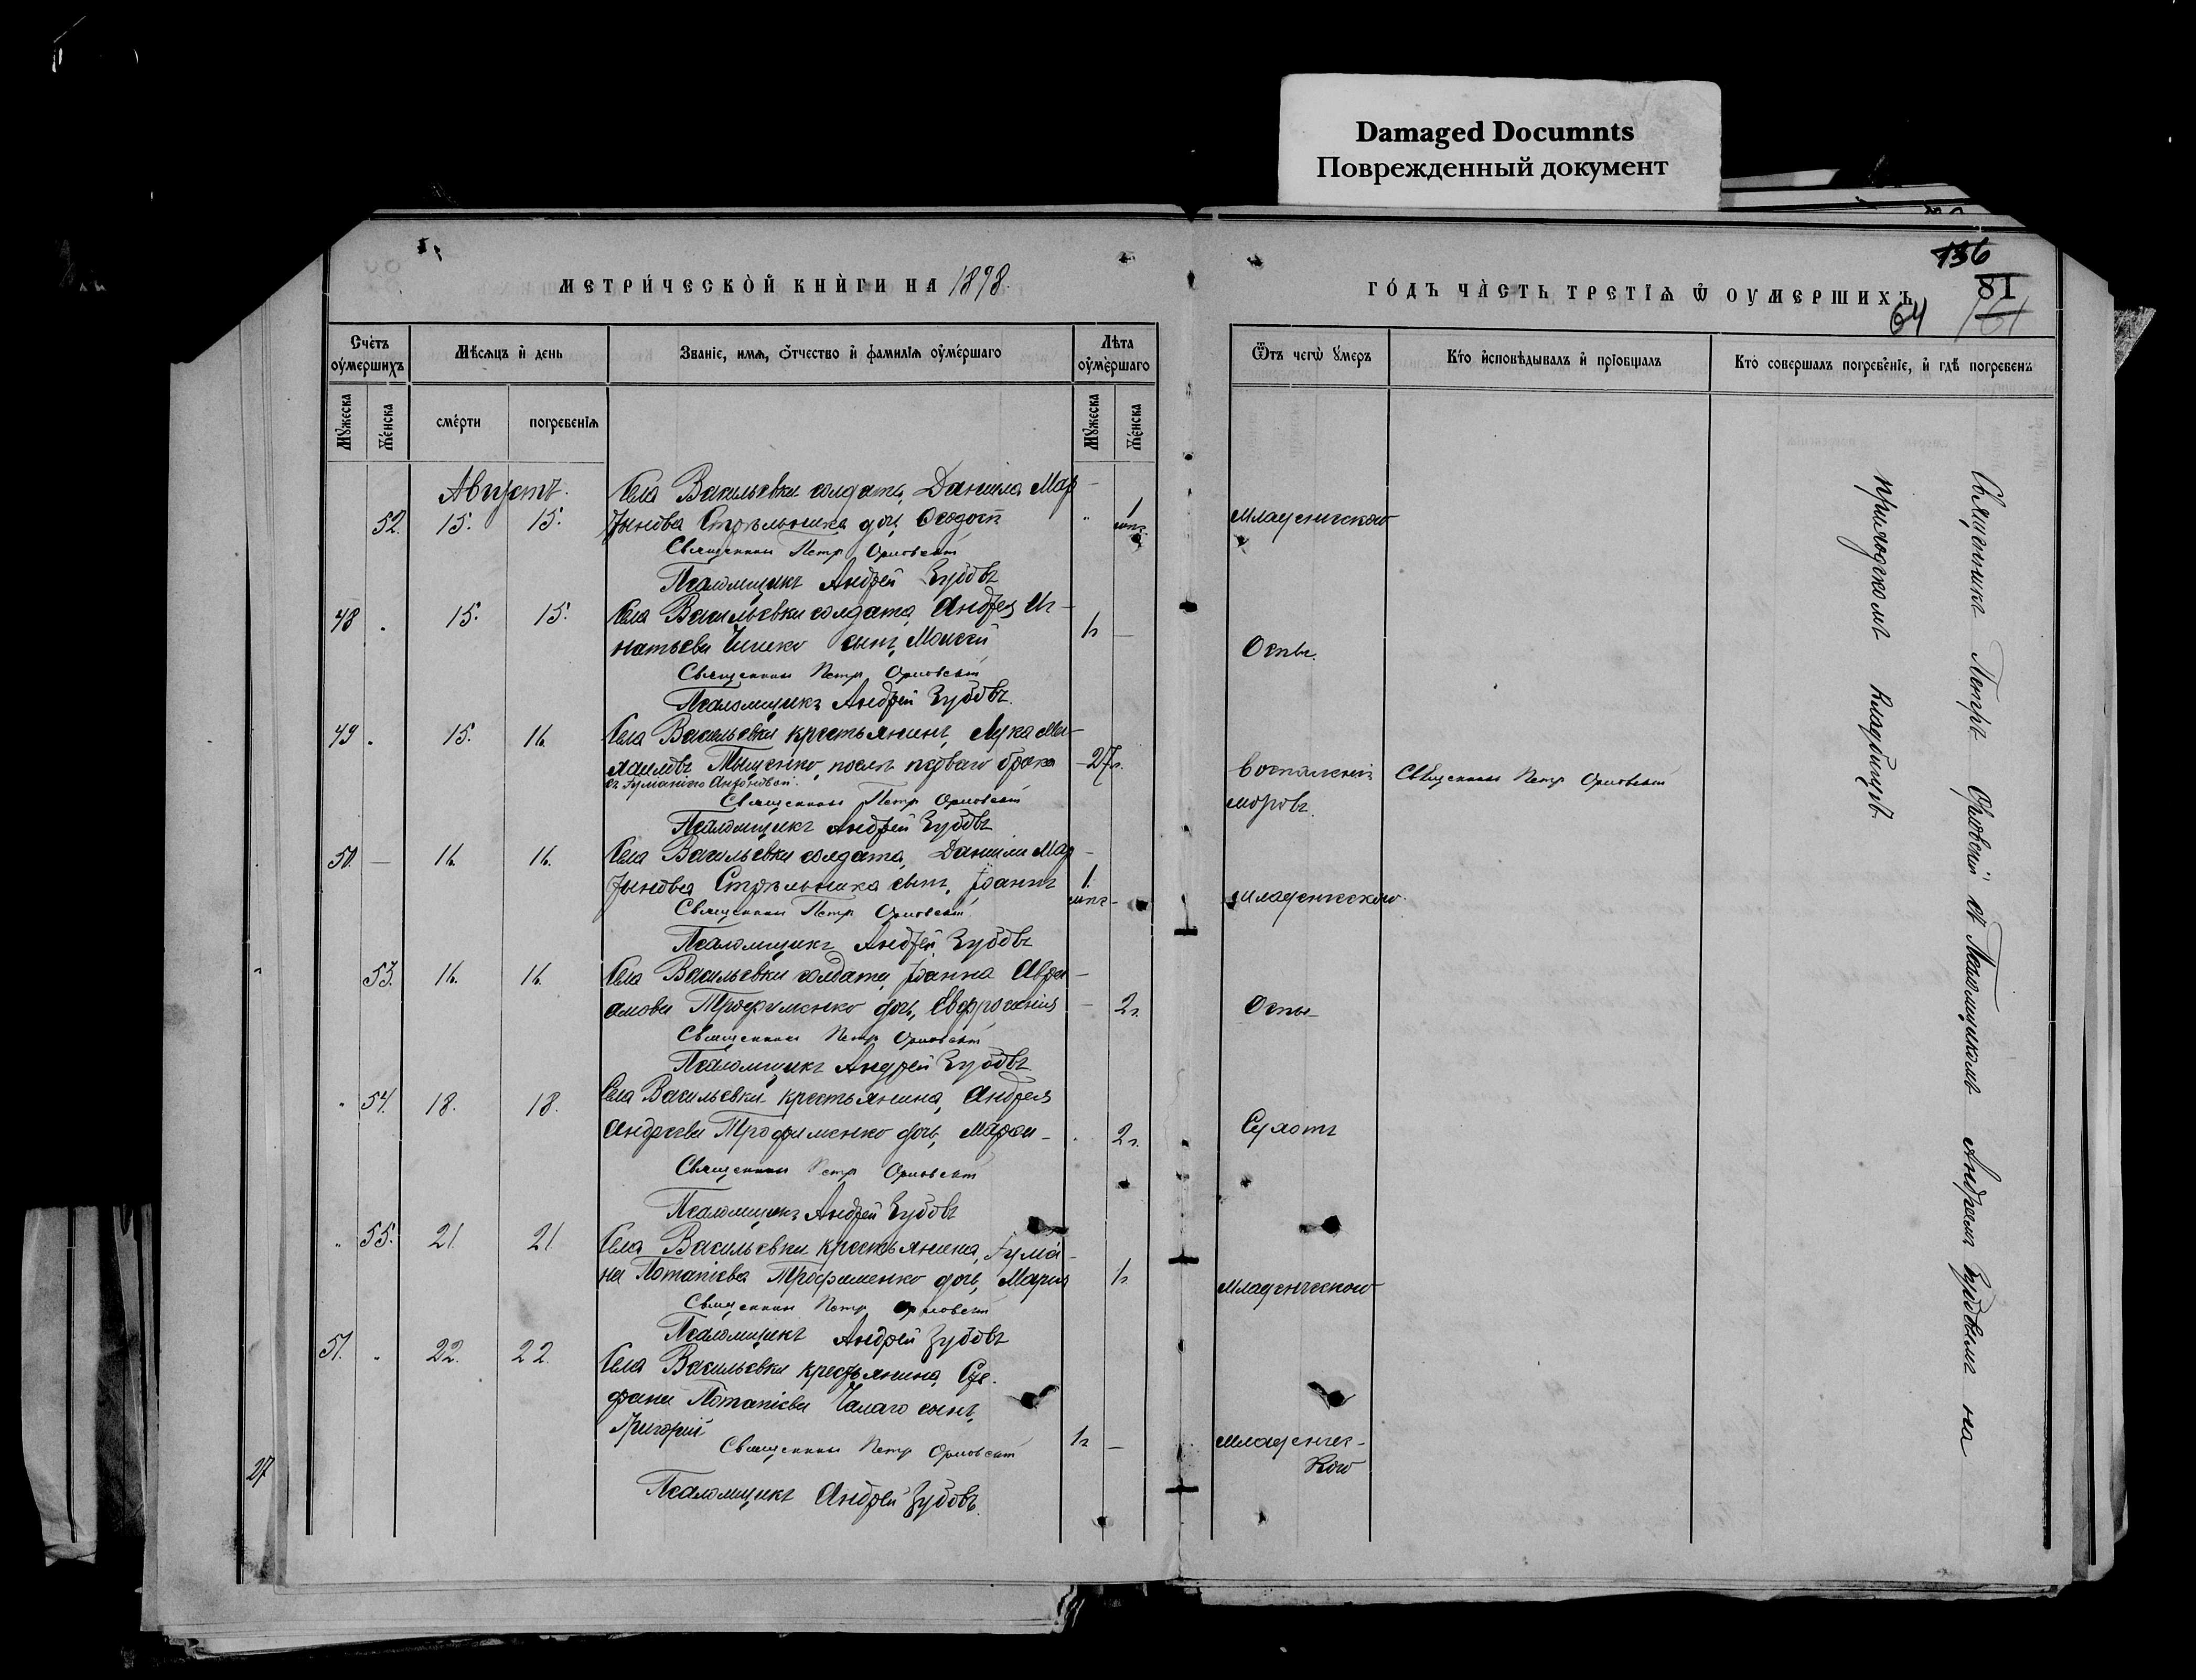 Damaged Documnts
Поврежденный документ
МЕТРИЧЕСКОЙ КНИГИ НА 1898.
ГОДЪ ЧАСТЬ ТРЕТІѦ Ѿ ОУМЕРШИХЪ
136
81
64
161
Счетъ оумершихъ
Мѣсяцъ и день
Званіе, имѧ, отчество и фамиліѧ оумершаго
Лѣта оумершаго
Ѿтъ чегѡ умеръ
Кто исповѣдывалъ и пріобщалъ
Кто совершалъ погребеніе, и гдѣ погребенъ
Мужеска
Женска
смерти
погребеніѧ
Мужеска
Женска
Августъ.
Села Васильевки солдата, Даніила Мар-
52. 15. 15. тынова Стрѣльника дочь, Ѳеодосія " 1 мѣс. Младенческою
Священникъ Петръ Орловскій
Псаломщикъ Андрей Зубовъ
48 . 15. 15. Села Васильевки солдата, Андрея Иг-
натьева сынъ, Моисей 1г — Оспы.
Священникъ Петръ Орловскій
Псаломщикъ Андрей Зубовъ.
49 . 15. 16. Села Васильевки крестьянинъ, Лука Ми-
хаиловъ Тыщенко, послѣ перваго брака 27г. Воспаленія
Священникъ Петръ Орловскій
Священникъ Петръ Орловскій
Псаломщикъ Андрей Зубовъ
50. — 16. 16. Села Васильевки солдата, Даніила Мар-
тынова Стрѣльника сынъ, Іоаннъ 1. мѣс — Младенческою.
Священникъ Петръ Орловскій
Псаломщикъ Андрей Зубовъ
53. 16. 16. Села Васильевки солдата, Іоанна Авра-
амова Трофименко дочь, Евфросинія — 2г. Оспы
Священникъ Петръ Орловскій
Псаломщикъ Андрей Зубовъ
" 54. 18. 18. Села Васильевки крестьянина, Андрея
Андреева Трофименко дочь, . 2г. Сухоты
Священникъ Петръ Орловскій
Псаломщикъ Андрей Зубовъ
" 55. 21 21 Села Васильевки крестьянина,
на Потапіева Трофименко дочь, Марія 1г Младенческою
Священникъ Петръ Орловскій
Псаломщикъ Андрей Зубовъ
51. . 22. 22. Села Васильевки крестьянина, Сте-
фана Потапіева Чалаго сынъ,
Григорій 1г — Младенчес-
кою
Священникъ Петръ Орловскій
Псаломщикъ Андрей Зубовъ.
27
Священникъ Петръ Орловскій съ Псаломщикомъ Андреемъ Зубовымъ на
приходскомъ кладбищѣ.